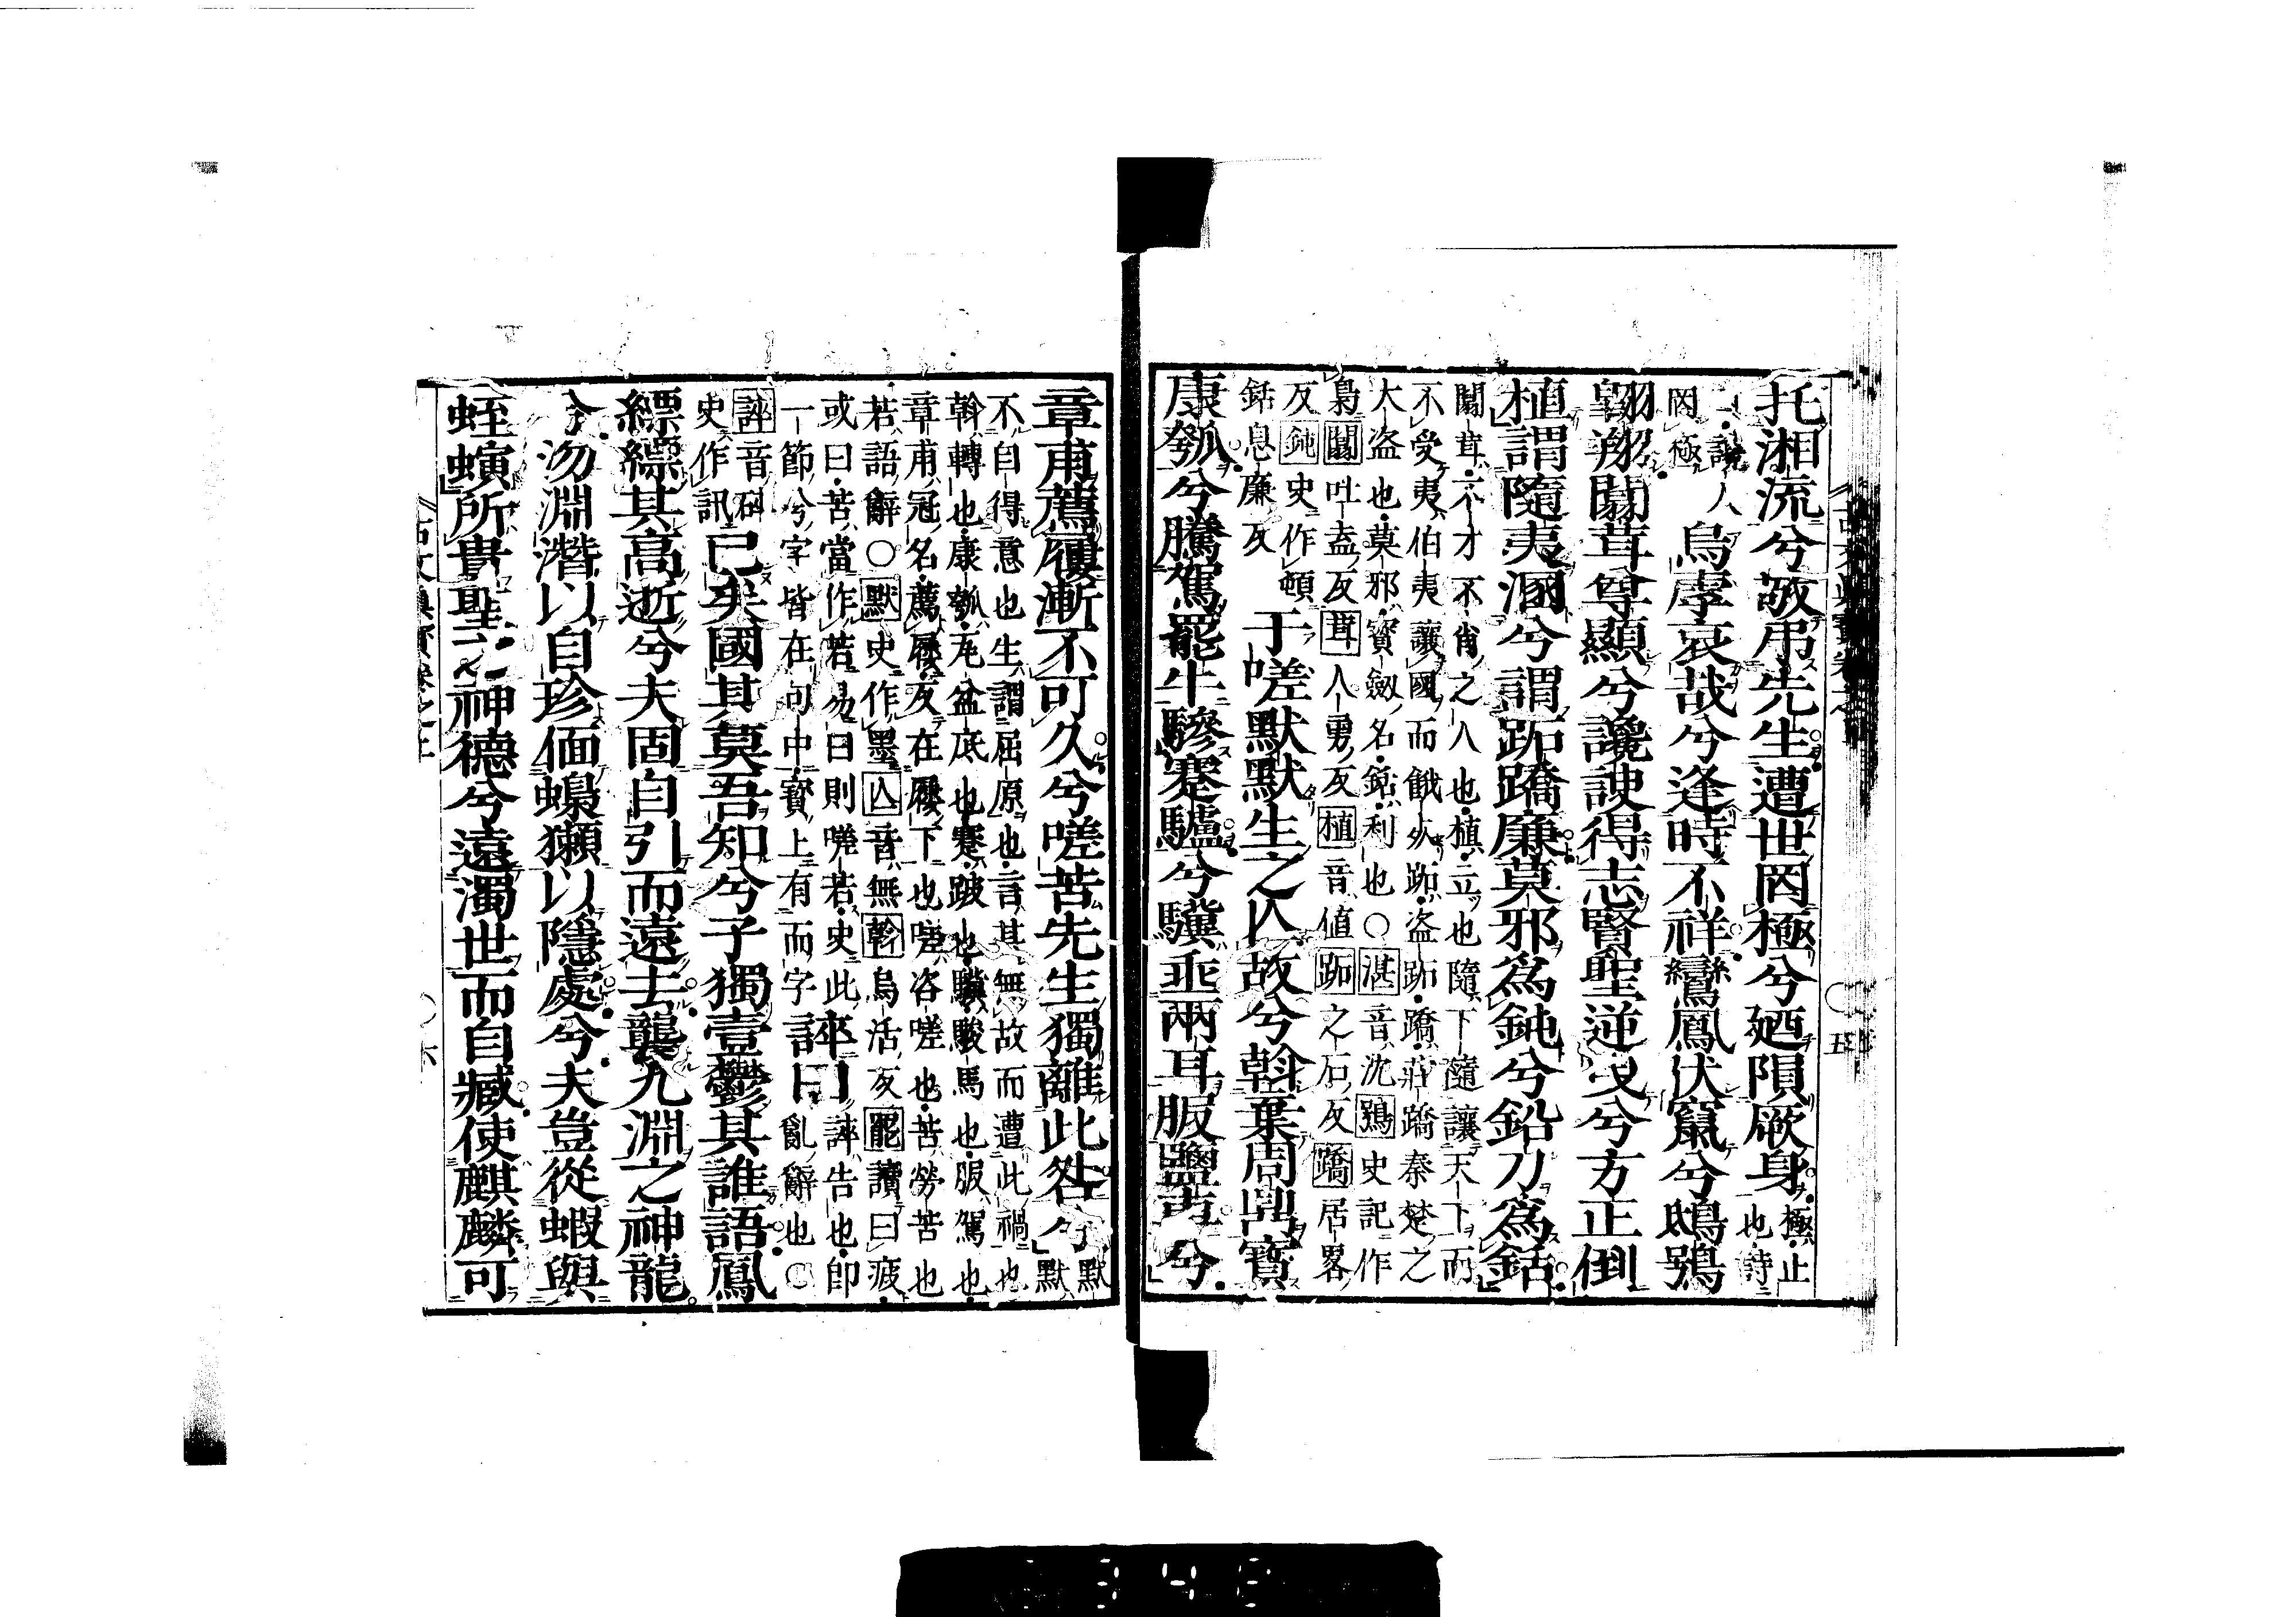 托湘流兮敬弔先生遭世罔極兮廼隕厥身極止
也詩
讒人
罔極
烏虖哀哉兮逢時不祥鸞鳳伏竄兮鴟鴞
翺翔闒茸尊顯兮讒諛得志賢聖逆曵兮方正倒
植謂隨夷溷兮謂跖蹻廉莫邪爲鈍兮鉛刀爲銛
闒茸不才不肖之人也植立也隨卞隨讓天下而
不受夷伯夷讓國而餓死跖盗跖蹻莊蹻秦楚之
大盗也莫邪寳劔名銛利也○湛音沈鴞史記作
梟闒吐盍反茸人勇反植音値跖之石反蹻居畧
反鈍史作頓
銛息廉反
于嗟默默生之亾故兮斡棄周鼎寳
康瓠兮騰駕罷牛驂蹇驢兮驥垂兩耳服鹽車兮
章甫薦屨漸不可久兮嗟苦先生獨離此咎兮默默
不自得意也生謂屈原也言其無故而遭此禍也
斡轉也康瓠瓦盆底也蹇跛也驥駿馬也服駕也
章甫冠名薦屨反在屨下也嗟咨嗟也苦勞苦也
若語辭○默史作墨亾音無斡烏活反罷讀曰疲
或曰苦當作若易曰則嗟若史此
一節兮字皆在句中寳上有而字
誶曰誶告也即
亂辭也○
誶音碎
史作訊
已矣國其莫吾知兮子獨壹鬱其誰語鳳
縹縹其高逝兮夫固自引而遠去襲九淵之神龍
兮沕淵潛以自珍偭蟂獺以隱處兮夫豈從蝦與
蛭螾所貴聖之神德兮遠濁世而自臧使麒麟可